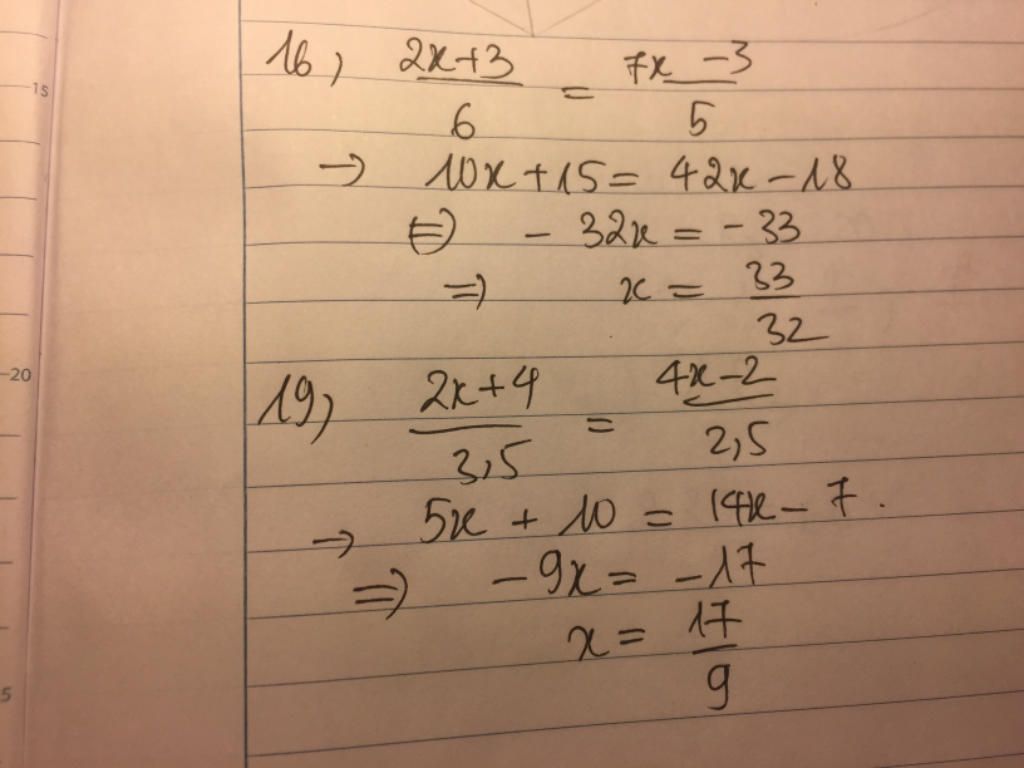 15
16) (2x+3)/6 = (7x-3)/5
→ 10x+15 = 42x-18
⇔ - 32x = -33
⇒ x = 33/32
20
19) (2x+4)/3,5 = (4x-2)/2,5
→ 5x + 10 = 14x - 7.
⇒ -9x = -17
x = 17/9
5